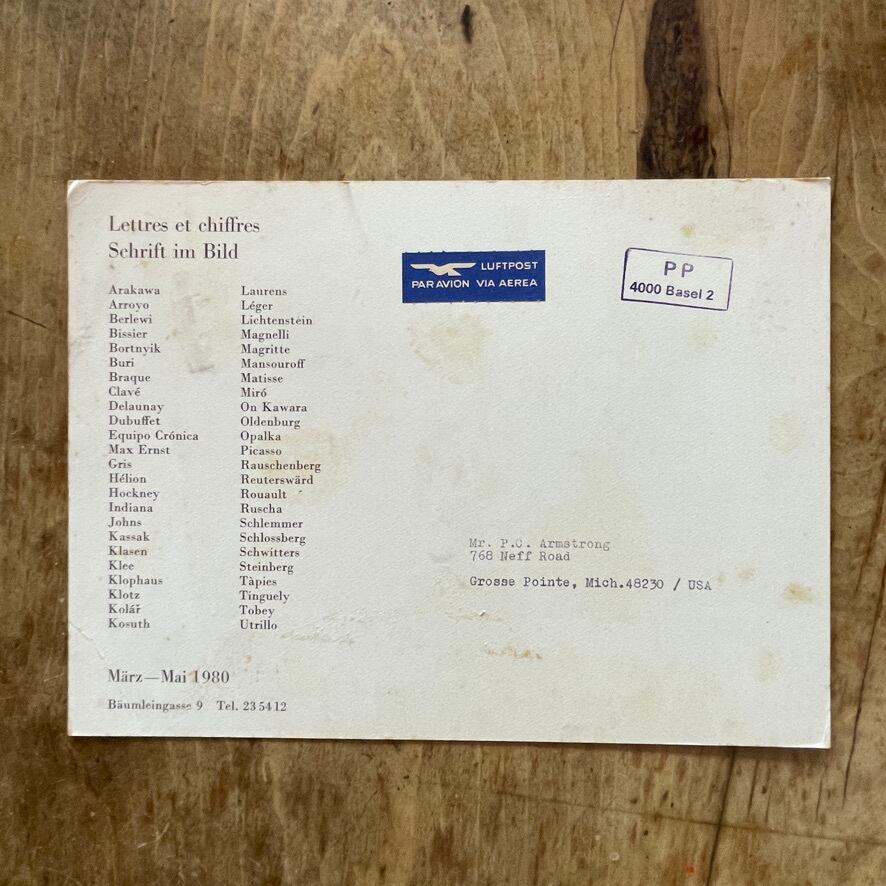 Lettres et chiffres
Schrift im Bild
Arakawa
Arroyo
Berlewi
Bissier
Bortnyik
Buri
Braque
Clavé
Delaunay
Dubuffet
Equipo Crónica
Max Ernst
Gris
Hélion
Hockney
Indiana
Johns
Kassak
Klasen
Klee
Klophaus
Klotz
Kolář
Kosuth
Laurens
Léger
Lichtenstein
Magnelli
Magritte
Mansouroff
Matisse
Miró
On Kawara
Oldenburg
Opalka
Picasso
Rauschenberg
Reuterswärd
Rouault
Ruscha
Schlemmer
Schlossberg
Schwitters
Steinberg
Tàpies
Tinguely
Tobey
Utrillo
März—Mai 1980
Bäumleingasse 9 Tel. 23 54 12
LUFTPOST
PAR AVION VIA AEREA
PP
4000 Basel 2
Mr. P.C. Armstrong
768 Neff Road
Grosse Pointe, Mich.48230 / USA